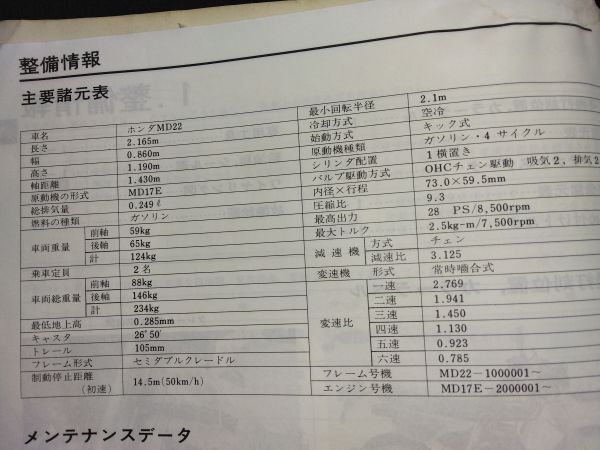 整備情報
主要諸元表
車名 ホンダMD22
長さ 2.165m
幅 0.860m
高さ 1.190m
軸距離 1.430m
原動機の形式 MD17E
総排気量 0.249ℓ
燃料の種類 ガソリン
車両重量 前軸 59kg
後軸 65kg
計 124kg
乗車定員 2名
車両総重量 前軸 88kg
後軸 146kg
計 234kg
最低地上高 0.285mm
キャスタ 26°50′
トレール 105mm
フレーム形式 セミダブルクレードル
制動停止距離 (初速) 14.5m(50km/h)
最小回転半径 2.1m
冷却方式 空冷
始動方式 キック式
原動機種類 ガソリン・4サイクル
シリンダ配置 1横置き
バルブ駆動方式 OHCチェン駆動 吸気2, 排気2
内径×行程 73.0×59.5mm
圧縮比 9.3
最高出力 28 PS/8,500rpm
最大トルク 2.5kg-m/7,500rpm
減速機 方式 チェン
減速比 3.125
変速機 形式 常時噛合式
変速比 一速 2.769
二速 1.941
三速 1.450
四速 1.130
五速 0.923
六速 0.785
フレーム号機 MD22-1000001~
エンジン号機 MD17E-2000001~
メンテナンスデータ